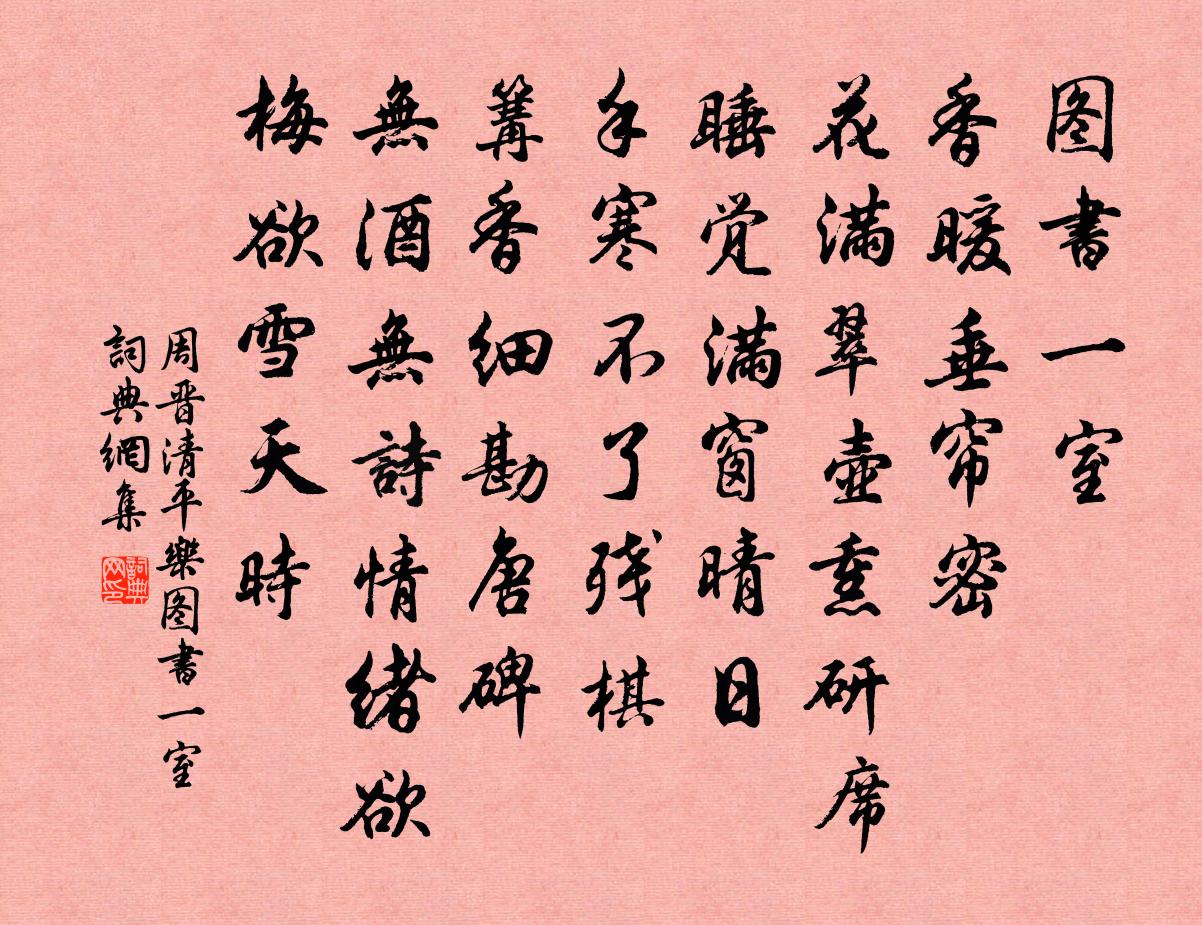 图書一室
香暖垂帘密
花满翠壺熏研席
睡觉满窗晴日
手寒不了残棋
篝香细勘唐碑
無酒無詩情緒欲
梅欲雪天時
周晋清平樂图書一室
詞典網集
詞典网印